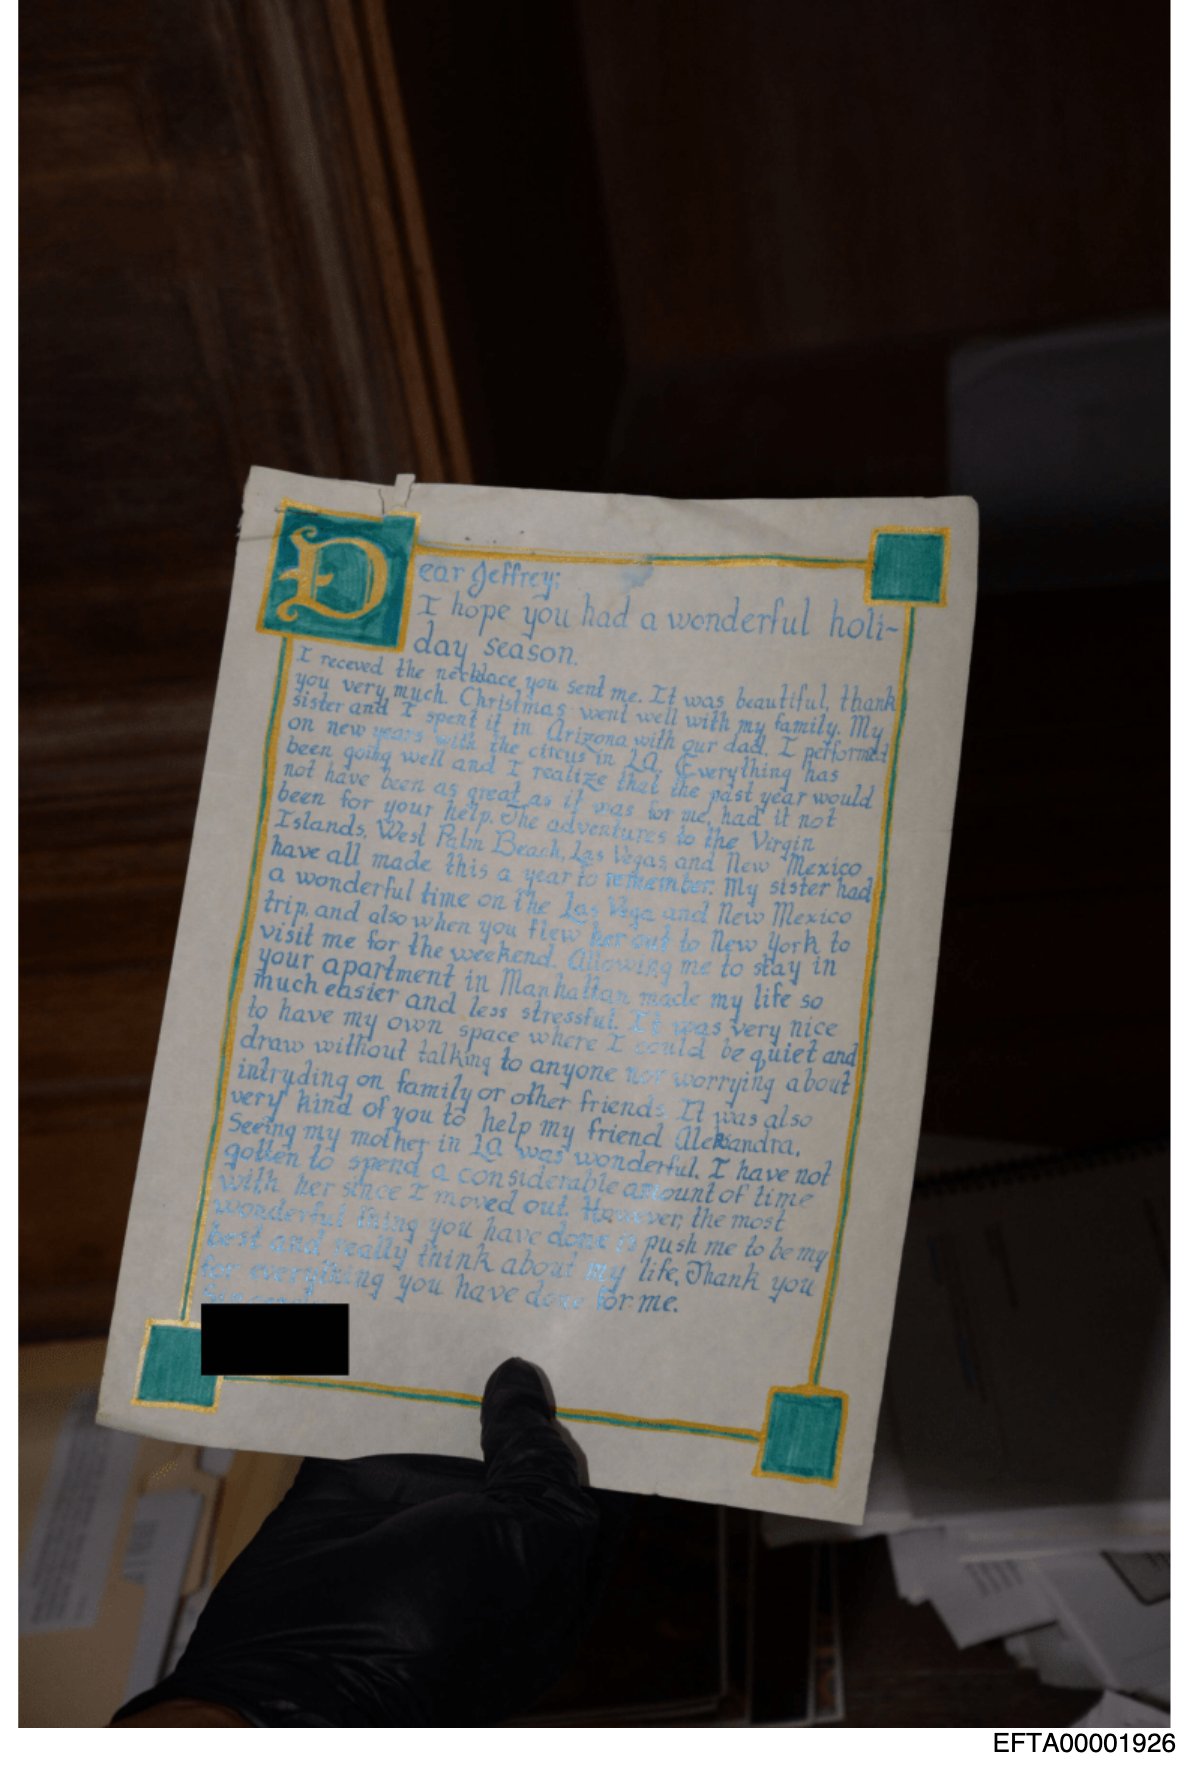 Dear Jeffrey;
I hope you had a wonderful holi-
day season.
I receved the necklace you sent me. It was beautiful, thank
you very much. Christmas went well with my family. My
sister and I spent it in Arizona with our dad. I performed
on new years with the circus in LA. Everything has
been going well and I realize that the past year would
not have been as great as it was for me, had it not
been for your help. The adventures to the Virgin
Islands, West Palm Beach, Las Vegas, and New Mexico
have all made this a year to remember. My sister had
a wonderful time on the Las Vega and New Mexico
trip, and also when you flew her out to New York to
visit me for the weekend. Allowing me to stay in
your apartment in Manhattan made my life so
much easier and less stressful. It was very nice
to have my own space where I could be quiet and
draw without talking to anyone nor worrying about
intruding on family or other friends. It was also
very kind of you to help my friend Aleksandra.
Seeing my mother in LA was wonderful. I have not
gotten to spend a considerable amount of time
with her since I moved out. However, the most
wonderful thing you have done is push me to be my
best and really think about my life. Thank you
for everything you have done for me.
EFTA00001926